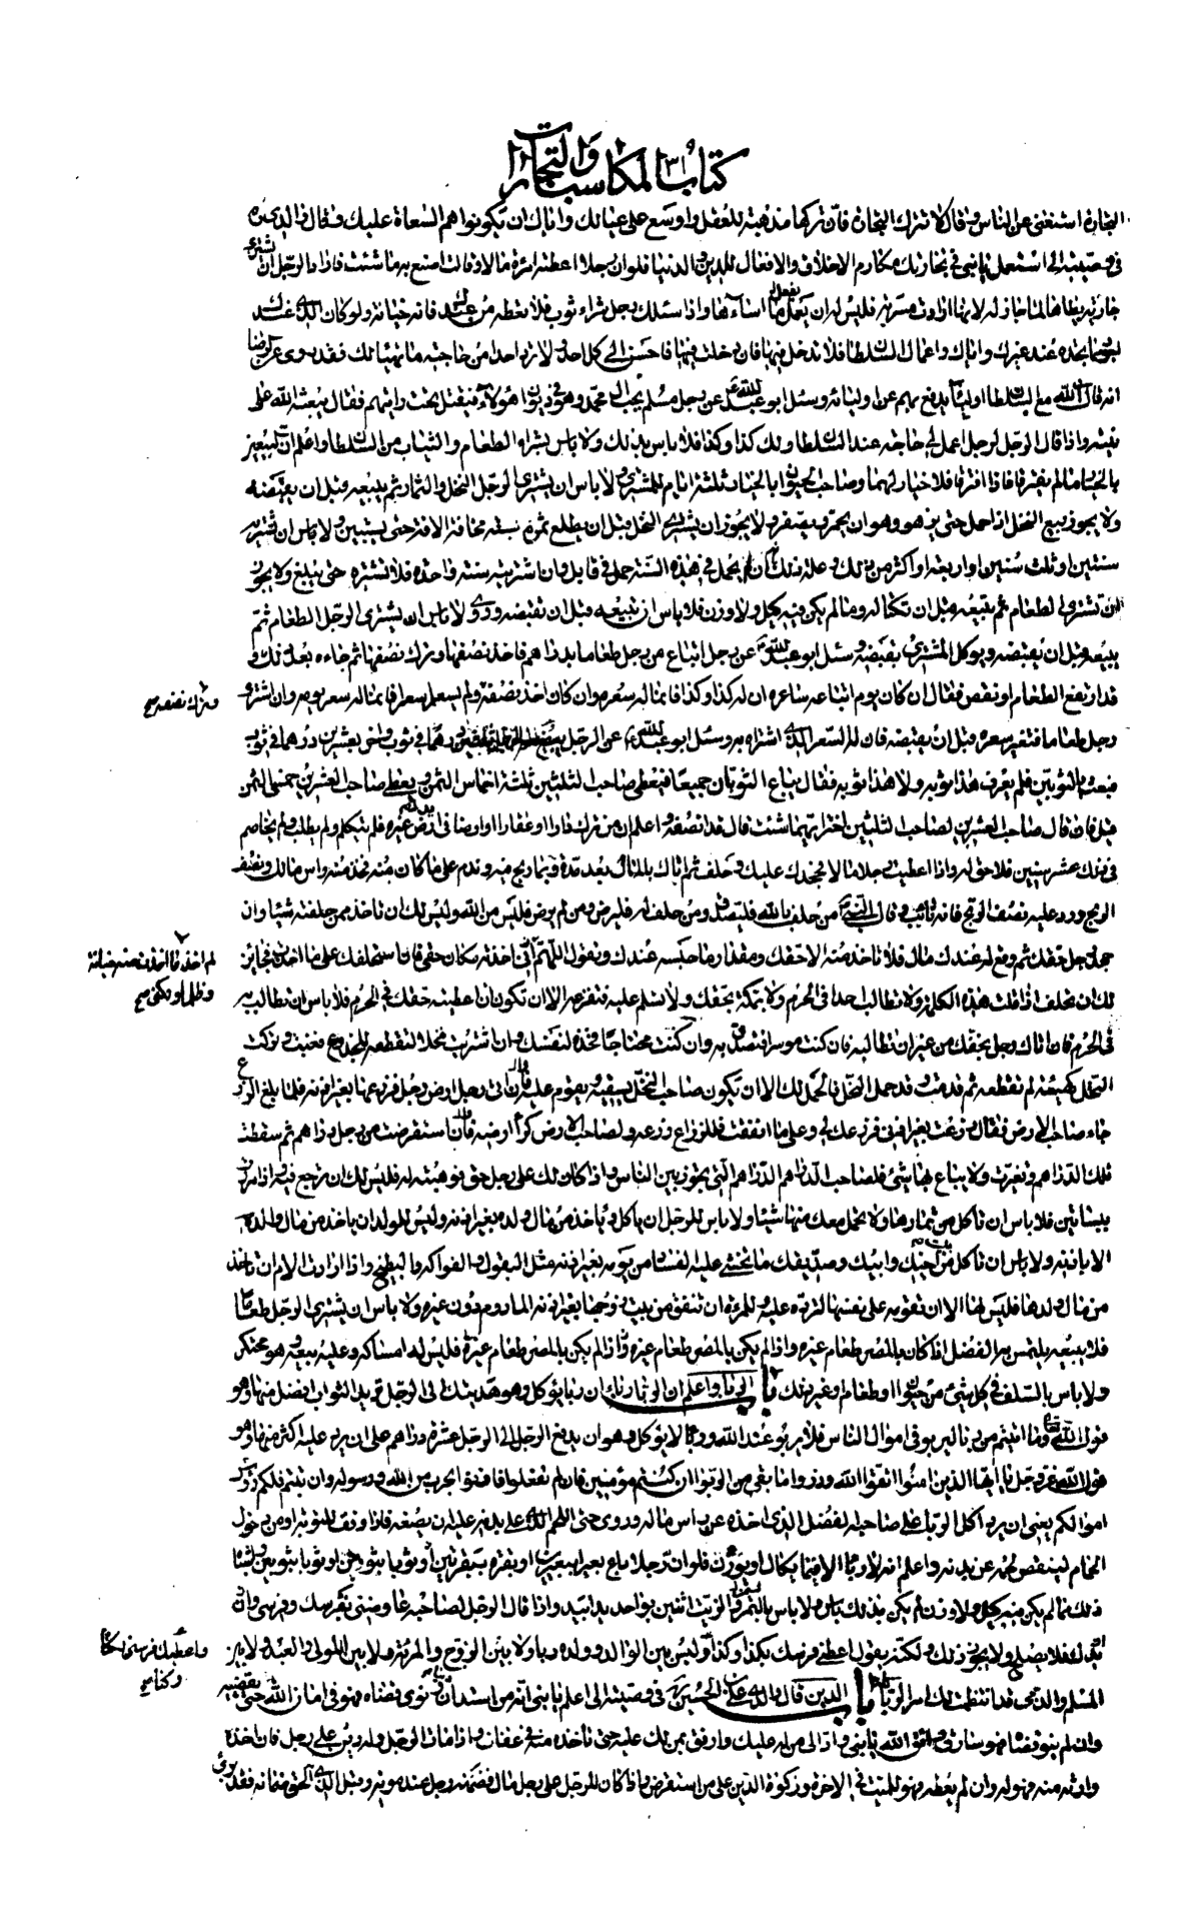 كتاب المكاسب والتجارات
التجارة استغنى عن الناس وقال لا تترك التجارة فان تركها مذهبة للعقل واوسع على عيالك واياك ان يكونوا هم السعاة عليك وقال والدى ره
فى وصيته الى استعمل يا بنى فى تجارتك مكارم الاخلاق والافعال للدين والدنيا فلو ان رجلا اعطته امرأة مالا وقالت اصنع به ما شئت فاذا اراد الرجل ان يشترى
جارية يطاها لما جاز له لانها ارادت مسرته فليس له ان يعمل ما اساءها واذا سئلك رجل شراء ثوب فلا تعطه من عندك فانه خيانة ولو كان الذى عندك
اجود مما تجده عند غيرك واياك واعمال السلطان فلا تدخل فيها فان دخلت فيها فاحسن الى كل احد ولا ترد احدا من حاجته ما تهيأ لك فقد روى عن الرضا
انه قال ان لله مع السلطان اولياء يدفع بهم عن اوليائه وسئل ابو عبد الله عن رجل مسلم يحب ال محمد وهو فى ديوان هؤلاء فيقتل تحت رايتهم فقال يبعثه الله على
نيته واذا قال الرجل لرجل اعمل لى حاجة عند السلطان ولك كذا وكذا فلا باس بذلك ولا باس بشراء الطعام والثياب من السلطان واعلم ان البيعين
بالخيار ما لم يفترقا فاذا افترقا فلا خيار لهما وصاحب الحيوان بالخيار ثلثة ايام للمشترى ولا باس ان يشترى الرجل النخل والثمار ثم يبيعه قبل ان يقبضه
ولا يجوز بيع النخل اذا حمل حتى يزهو وهو ان يحمر ويصفر ولا يجوز ان يشترى النخل قبل ان يطلع ثمره سنة مخافة الافة حتى يستبين ولا باس ان تشتريه
سنتين او ثلث سنين او اربعة او اكثر من ذلك وعلة ذلك ان لم يحمل فى هذه السنة حمل فى قابل وان شتريته سنة واحدة فلا تشتره حتى يبلغ ولا يجوز
ان تشترى الطعام ثم تبيعه قبل ان تكتاله وما لم يكن فيه كيل ولا وزن فلا باس ان تبيعه قبل ان تقبضه وروى لا باس ان يشترى الرجل الطعام ثم
يبيعه قبل ان يقبضه ويوكل المشترى بقبضه وسئل ابو عبد الله عن رجل ابتاع من رجل طعاما بدراهم فاخذ نصفها وترك نصفها ثم جاءه بعد ذلك و
قد ارتفع الطعام او نقص فقال ان كان يوم ابتاعه ساعره ان له كذا وكذا فماله سعره وان كان اخذ نصفه ولم يسم سعرا فماله سعر يومه وان اشترى
وترك نصفه صح
رجل طعاما فتغير سعره قبل ان يقبضه فان له السعر الذى اشتراه به وسئل ابو عبد الله ع عن الرجل يبضعه الرجل ثلثين درهما فى ثوب واخر بعشرين درهما فى ثوب
فبعث بالثوبين فلم يعرف هذا ثوبه ولا هذا ثوبه فقال يباع الثوبان جميعا فيعطى صاحب الثلثين ثلثة اخماس الثمن ويعطى صاحب العشرين خمسى الثمن
قيل فان قال صاحب العشرين لصاحب الثلثين اختر ايهما شئت قال قد انصفه واعلم ان من ترك دارا او عقارا او ارضا فى يد غيره فلم يتكلم ولم يطلب ولم يخاصم
فى ذلك عشر سنين فلا حق له واذا اعطيت رجلا مالا فجحدك عليك وحلف ثم اتاك بالمال بعد مدة وبما ربح فيه وندم على ما كان منه فخذ منه راس مالك ونصف
الربح ورد عليه نصف الربح فانه تائب وقال النبى ص من حلف بالله فليصدق ومن حلف له فليرض ومن لم يرض فليس من الله وليس لك ان تاخذ ممن حلفته شيئا وان
جحد رجل حقك ثم وقع له عندك مال فلا تاخذ منه الا حقك ومقدار ما حبسه عندك وتقول اللهم انى اخذته مكان حقى فان استحلفك على ما اخذت فجائز
لم اخذ ما اخذت منه خيانة
ولا ظلما ولكنى صح
لك ان تحلف اذا قلت هذه الكلمة ولا تطالب احدا فى الحرم ولا بمكة بحقك ولا تسلم عليه فتفزعه الا ان تكون اعطيته حقك فى الحرم فلا باس ان تطالب به
فى الحرم فان اتاك رجل بحقك من غير ان تطالبه فان كنت موسرا فتصدق به وان كنت محتاجا فخذه لنفسك وان اشتريت نخلا لتقطعه للجذوع فغبت وتركت
النخل كهيئته لم تقطعه ثم قدمت وقد حمل النخل فالحمل لك الا ان تكون صاحب النخل يسقيه ويقوم عليه فان اتى رجل ارض رجل فزرعها بغير اذنه فلما بلغ الزرع
جاء صاحب الارض فقال زرعت بغير اذنى فزرعك لى وعلى ما انفقت فللزارع زرعه ولصاحب الارض كرى ارضه فان استقرضت من رجل دراهم ثم سقطت
تلك الدراهم وتغيرت ولا يباع بها شئ فلصاحب الدراهم الدراهم التى يجوز بين الناس واذا كان لك على رجل حق فوهبته له فليس لك ان ترجع فيه واذا مررت
ببساتين فلا باس ان تاكل من ثمارها ولا تحمل معك منها شيئا ولا باس للرجل ان ياكل وياخذ من مال ولده بغير اذنه وليس للولد ان ياخذ من مال والده
الا باذنه ولا باس ان تاكل من بيت اخيك وابيك وصديقك ما تخشى عليه الفساد من يومه بغير اذنه مثل البقول والفواكه والبطيخ واذا ارادت الام ان تاخذ
من مال ولدها فليس لها الا ان تقومه على نفسها لترده عليه وللمرءة ان تنفق من بيت زوجها بغير اذنه المادوم دون غيره ولا باس ان يشترى الرجل طعاما
فلا يبيعه يلتمس به الفضل اذا كان بالمصر طعام غيره واذا لم يكن بالمصر طعام غيره فليس له امساكه وعليه بيعه وهو محتكر
ولا باس بالسلف فى كل شئ من حيوان او طعام وغير ذلك باب الربا واعلم ان الربا رباان ربا يؤكل وهو هديتك الى الرجل تريد الثواب افضل منها وهو
قول الله وما اتيتم من ربا ليربو فى اموال الناس فلا يربو عند الله وربا لا يؤكل وهو ان يدفع الرجل الى الرجل عشرة دراهم على ان يرد عليه اكثر منها وهو
قول الله عز وجل يا ايها الذين امنوا اتقوا الله وذروا ما بقى من الربوا ان كنتم مؤمنين فان لم تفعلوا فاذنوا بحرب من الله ورسوله وان تبتم فلكم رؤس
اموالكم يعنى ان يرد اكل الربا على صاحبه الفضل الذى اخذه عن راس ماله وروى حتى اللحم الذى على بدنه عليه ان يضعه فاذا وفق للتوبة ادمن دخول
الحمام لينقص لحمه عن بدنه واعلم انه لا ربا الا فيما يكال او يوزن فلو ان رجلا باع بعيرا ببعيرين او بقرة ببقرتين او ثوبا بثوبين او اشباه
ذلك مما لم يكن فيه كيل ولا وزن لم يكن بذلك باس ولا باس بالتمر والزيت اثنين بواحد يدا بيد واذا قال الرجل لصاحبه عاوضنى بفرسك وفرسى وازيدك
فلا يصلح ولا يجوز ذلك ولكنه يقول اعطنى فرسك بكذا وكذا وليس بين الوالد وولده ربا ولا بين الزوج والمرءة ولا بين المولى والعبد ولا بين
واعطيك فرسى بكذا
وكذا صح
المسلم والذمى باب الدين قال والدى على بن الحسين ره فى وصيته الى اعلم يا بنى انه من استدان دينا ونوى قضاه فهو فى امان الله حتى يقضيه
وان لم ينو قضاه فهو سارق فاتق الله يا بنى واد الى من له عليك وارفق بمن لك عليه حتى تاخذه منه فى عفاف واذا مات الرجل وله دين على رجل فان اخذه
وارثه منه فهو له وان لم يعطه فهو للميت فى الاخرة وزكوة الدين على من استقرض واذا كان للرجل على رجل مال فضمنه رجل عند موته وقبل الذى له الحق ضمانه فقد برئ